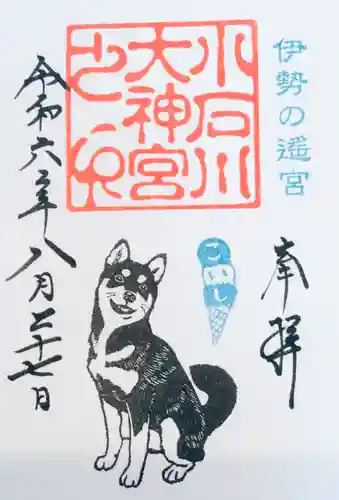 伊勢の遙宮
奉拝
こいし
小石川
大神宮
之印
令和六年八月二十七日